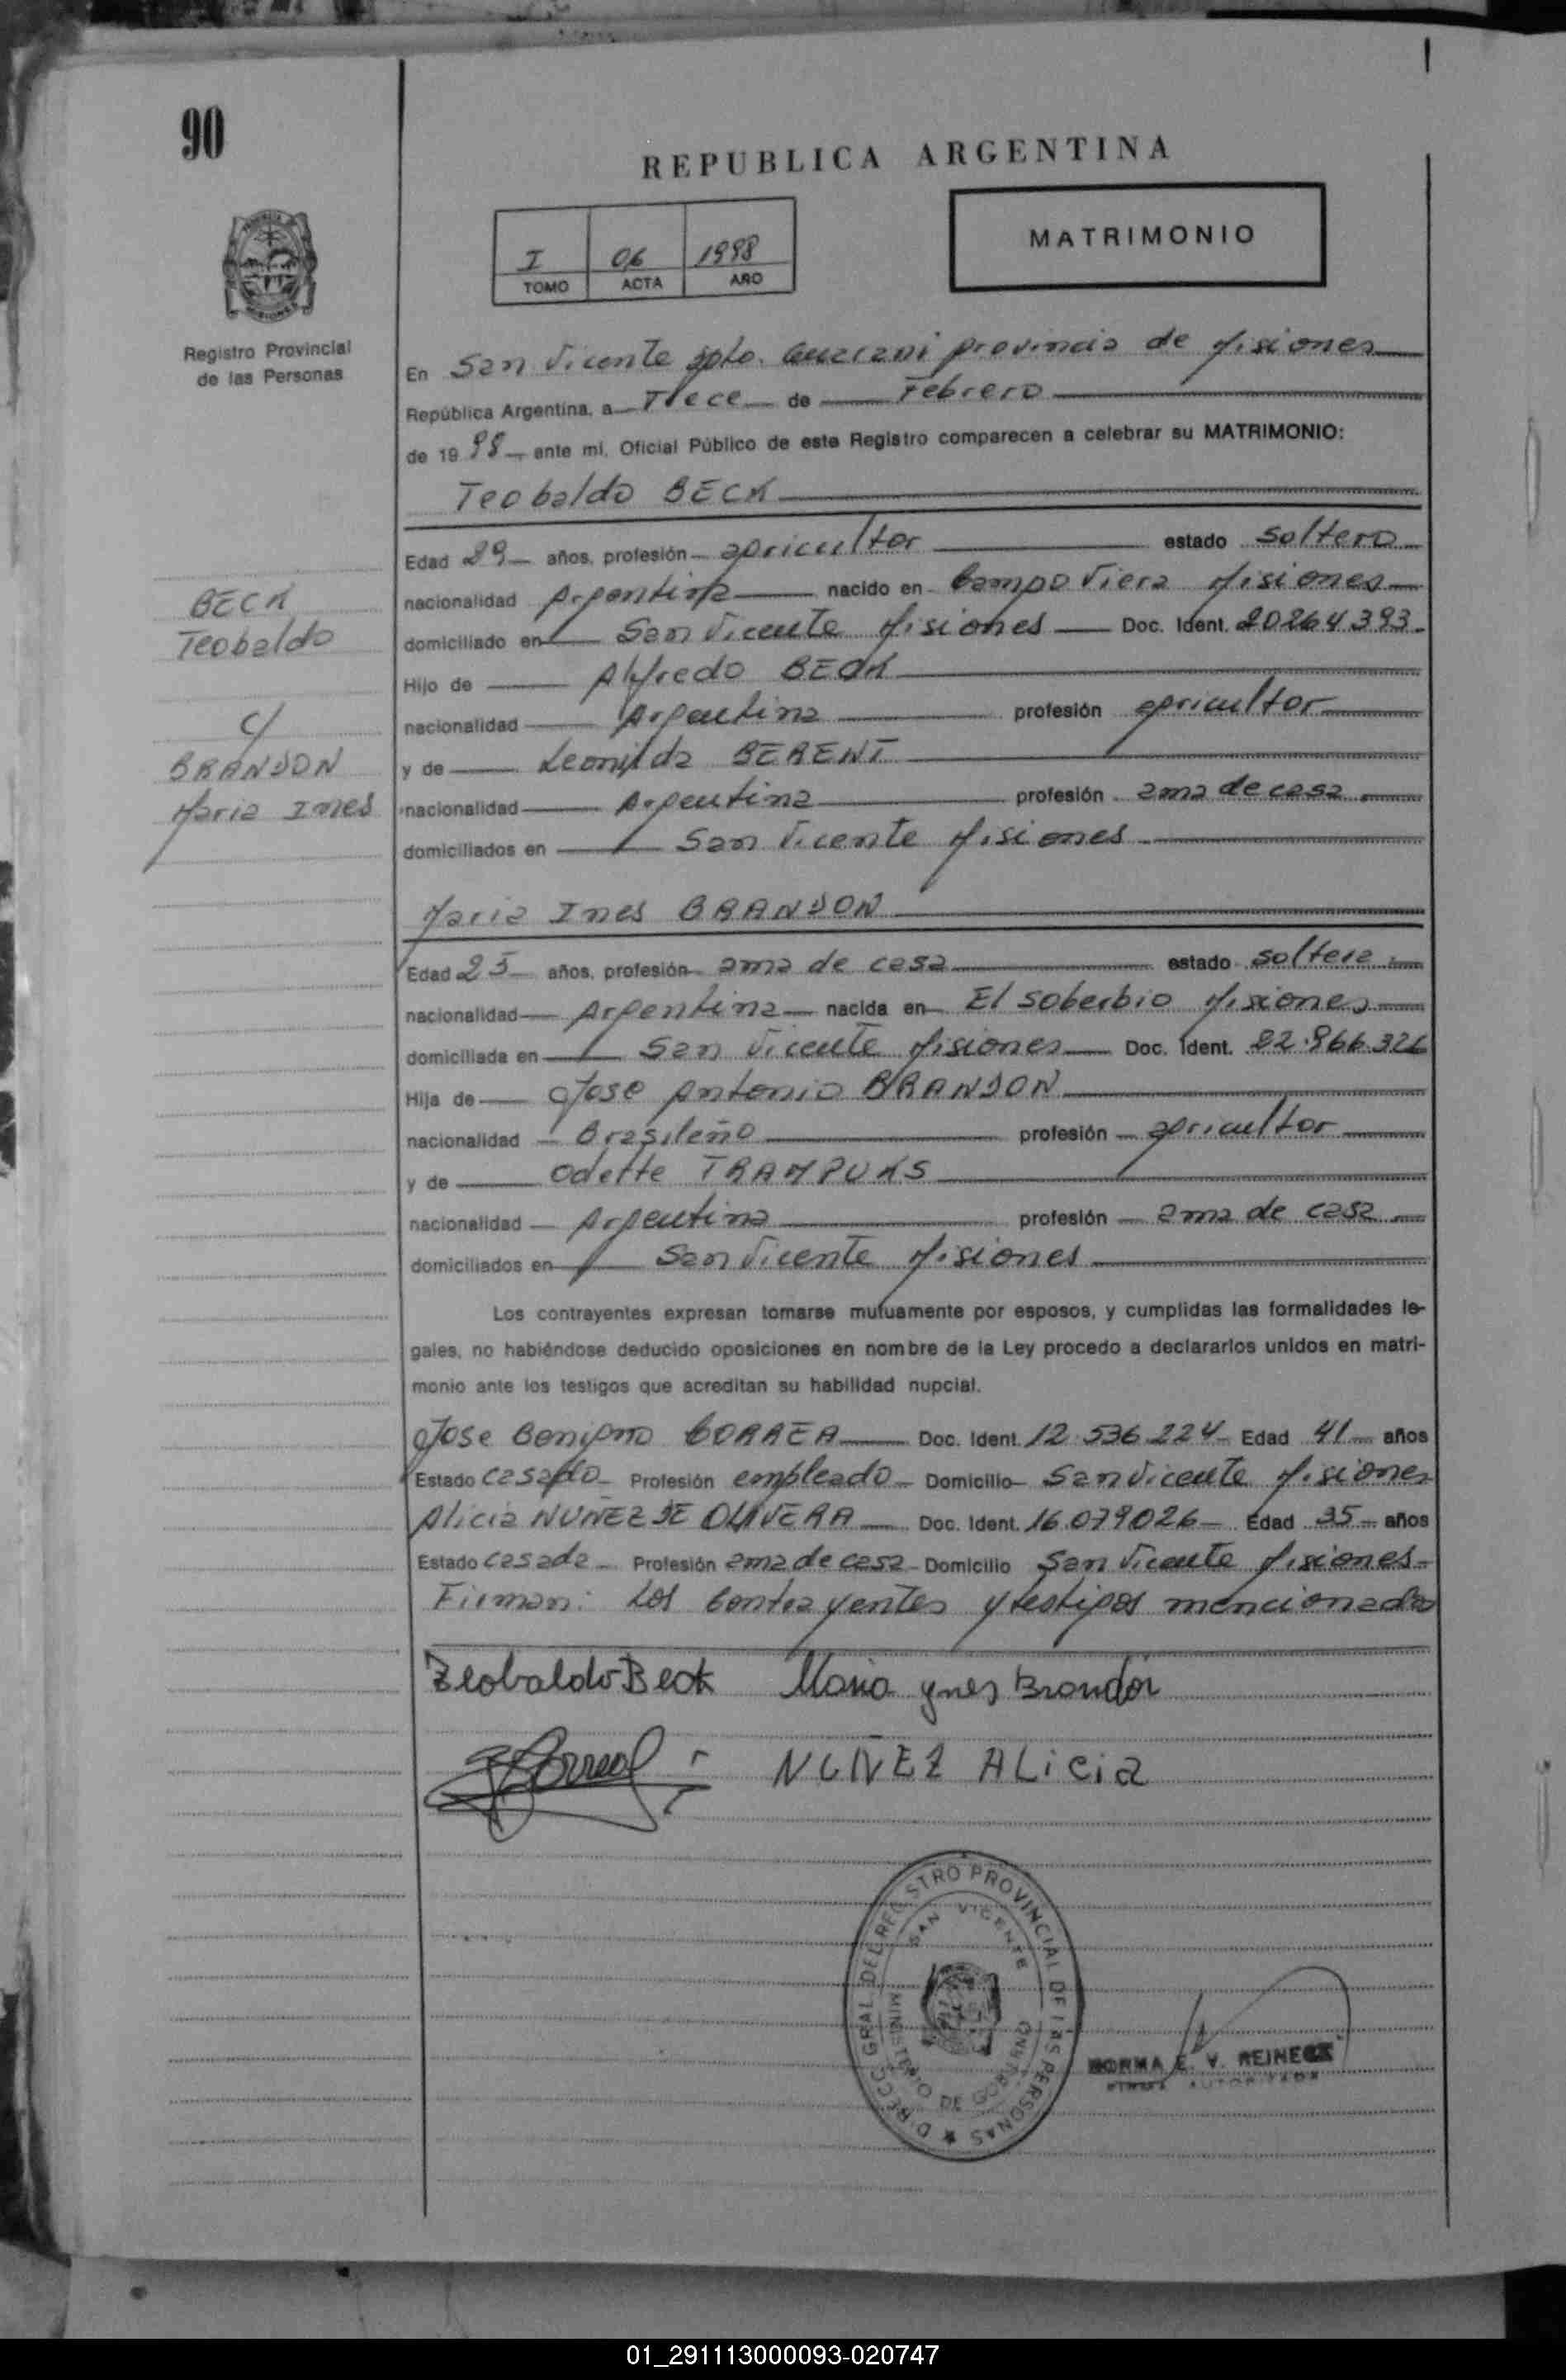 90
REPUBLICA ARGENTINA
I 06 1998
TOMO ACTA AÑO
MATRIMONIO
Registro Provincial
de las Personas
En San Vicente Dpto. Guarani provincia de Misiones
República Argentina, a Trece de Febrero
de 1998 ante mi, Oficial Público de este Registro comparecen a celebrar su MATRIMONIO:
Teobaldo BECK
Edad 29 años, profesión agricultor estado soltero
nacionalidad Argentina nacido en Campo Viera Misiones
domiciliado en San Vicente Misiones Doc. Ident. 20264393
Hijo de Alfredo BECK
nacionalidad Argentina profesión agricultor
y de Leonilda BERENT
nacionalidad Argentina profesión ama de casa
domiciliados en San Vicente Misiones
BECK
Teobaldo
c/
BRANDON
Maria Ines
Maria Ines BRANDON
Edad 25 años, profesión ama de casa estado soltera
nacionalidad Argentina nacida en El Soberbio Misiones
domiciliada en San Vicente Misiones Doc. Ident. 22.866.326
Hija de Jose Antonio BRANDON
nacionalidad Brasileño profesión agricultor
y de Odette TRAMPUKS
nacionalidad Argentina profesión ama de casa
domiciliados en San Vicente Misiones
Los contrayentes expresan tomarse mutuamente por esposos, y cumplidas las formalidades le-
gales, no habiéndose deducido oposiciones en nombre de la Ley procedo a declararlos unidos en matri-
monio ante los testigos que acreditan su habilidad nupcial.
Jose Benigno CORREA Doc. Ident. 12.536.224 Edad 41 años
Estado casado Profesión empleado Domicilio San Vicente Misiones
Alicia NUÑEZ DE OLIVERA Doc. Ident. 16.079026 Edad 35 años
Estado casada Profesión ama de casa Domicilio San Vicente Misiones
Firman: Los Contrayentes y testigos mencionados
Teobaldo Beck Maria ynes Brandón
NUÑEZ ALicia
DIRECC. GRAL. DEL REGISTRO PROVINCIAL DE LAS PERSONAS
SAN VICENTE
MINISTERIO DE GOBIERNO
NORMA E. V. REINECK
FIRMA AUTORIZADA
01_291113000093-020747